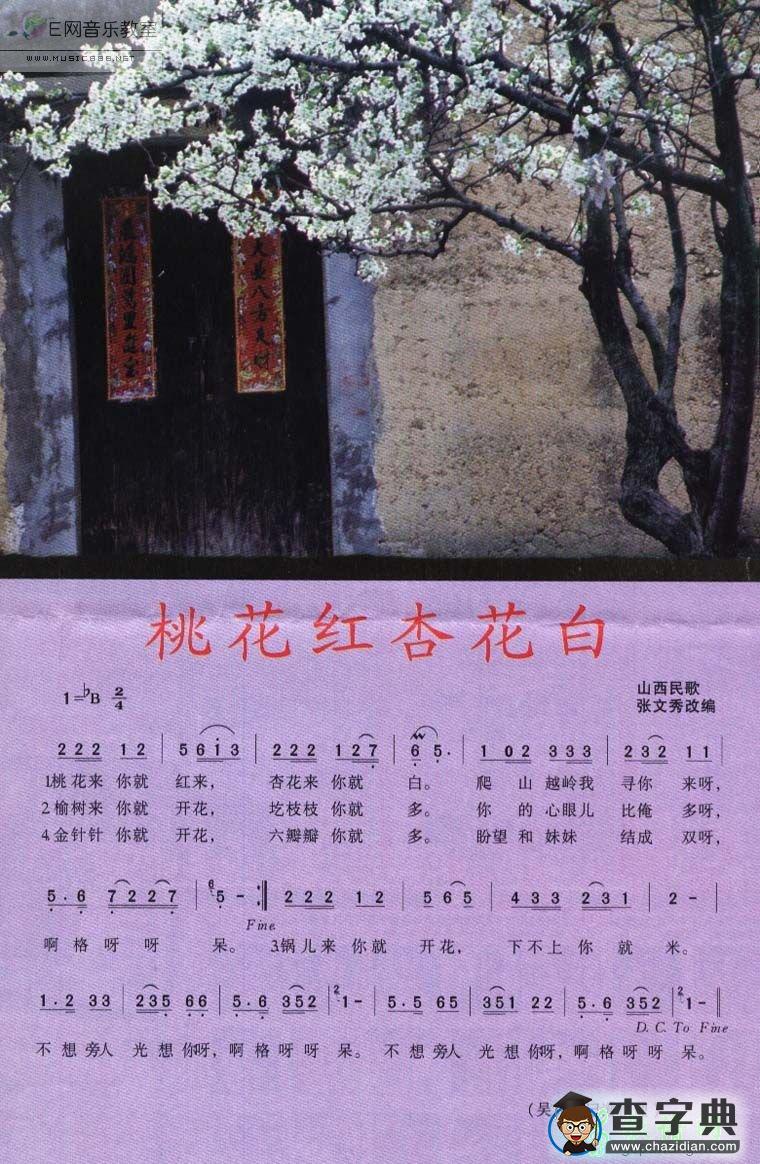 E网音乐教室
WWW.MUSIC888.NET
桃花红杏花白
1=♭B 2/4
山西民歌
张文秀改编
2 2 2 1 2 | 5 6 i 3 | 2 2 2 1 2 7 | 6 5 · | 1 0 2 3 3 3 | 2 3 2 1 1 |
1.桃花来 你就 红来， 杏花来 你就 白。 爬 山 越岭我 寻你 来呀，
2.榆树来 你就 开花， 圪枝枝 你就 多。 你 的 心眼儿 比俺 多呀，
4.金针针 你就 开花， 六瓣瓣 你就 多。 盼望 和 妹妹 结成 双呀，
5 · 6 7 2 2 7 | 6 5 - :| 2 2 2 1 2 | 5 6 5 | 4 3 3 2 3 1 | 2 - |
Fine.
啊 格 呀 呀 呆。 3.锅儿来 你就 开花， 下不上 你 就 米。
1 · 2 3 3 | 2 3 5 6 6 | 5 · 6 3 5 2 | 2 1 - | 5 · 5 6 5 | 3 5 1 2 2 | 5 · 6 3 5 2 | 2 1 - ||
D.C. To Fine
不 想 旁人 光 想 你呀， 啊 格 呀 呀 呆。 不 想 旁 人 光 想 你呀， 啊 格 呀 呀 呆。
（吴
查字典
www.chazidian.com